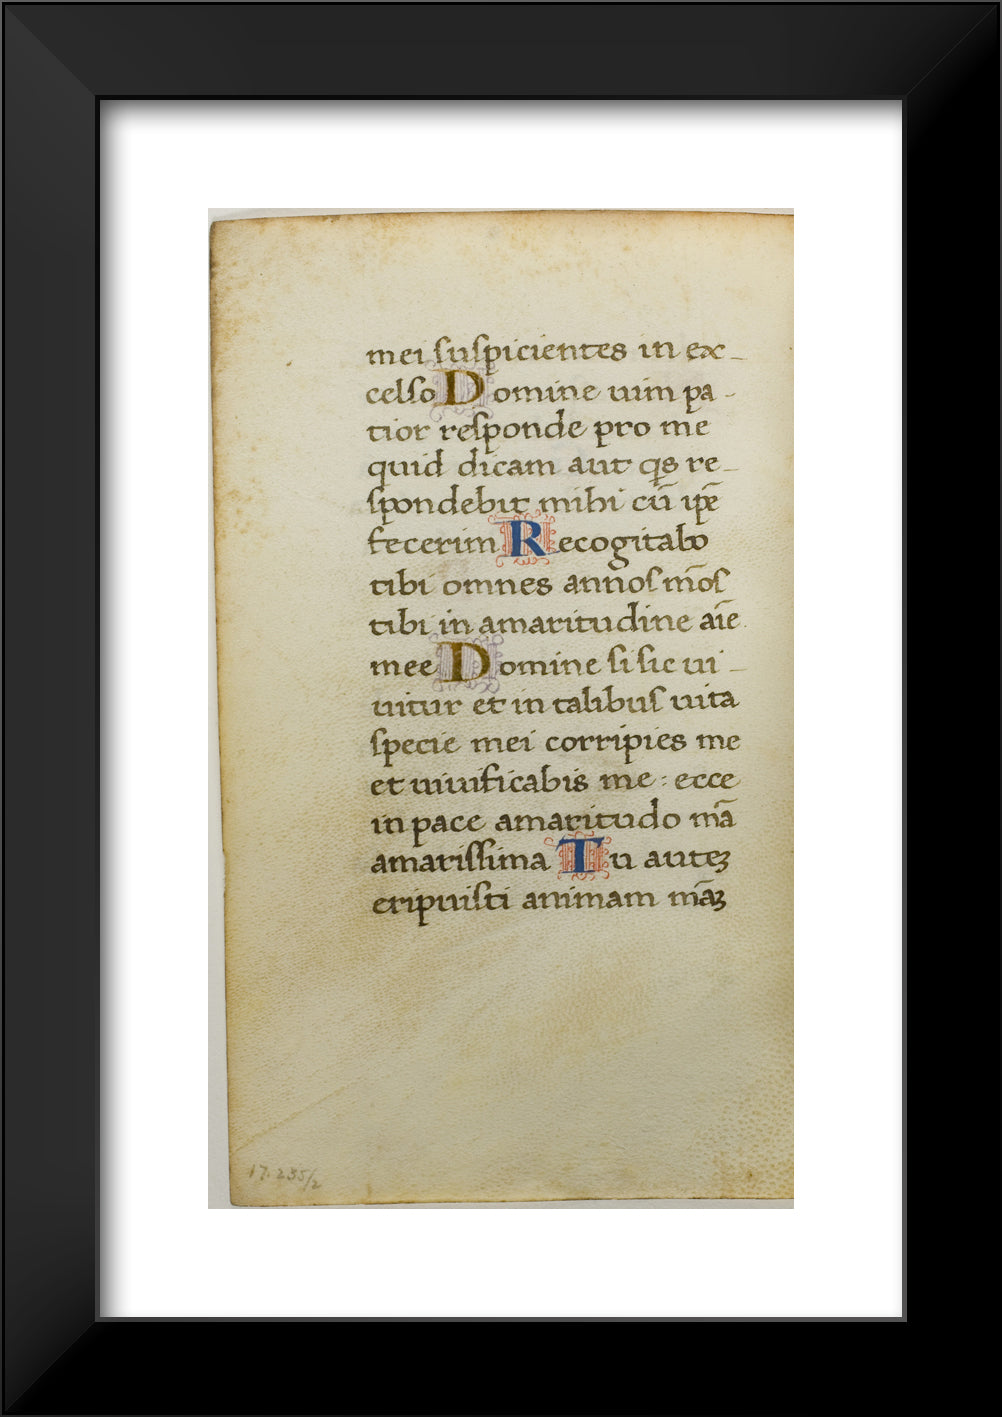 mei suspicientes in ex-
celso Domine uim pa-
tior responde pro me
quid dicam aut qs re-
spondebit mihi cū ip̄e
fecerim Recogitabo
tibi omnes annos mōs
tibi in amaritudine aīe
mee Domine si sic ui-
uitur et in talibus uita
specie mei corripies me
et uiuificabis me : ecce
in pace amaritudo mā
amarissima Tu auteꝫ
eripuisti animam māꝫ
17.235/2